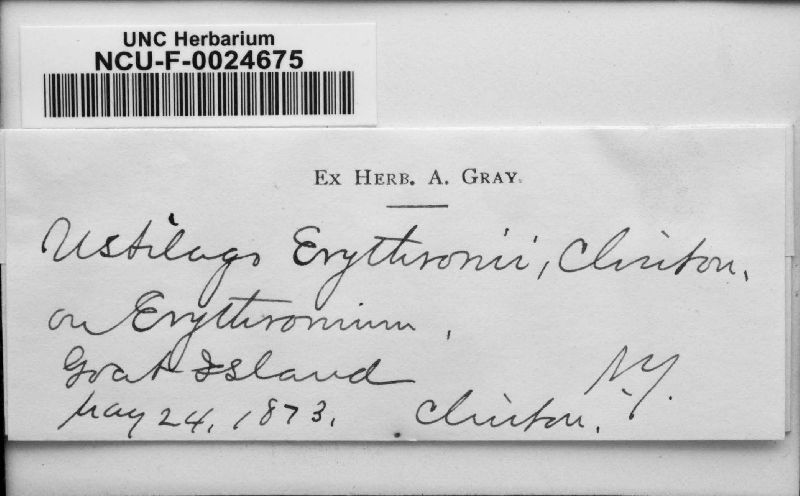 UNC Herbarium
NCU-F-0024675
EX HERB. A. GRAY.
Ustilago Erythronii, Clinton.
on Erythronium,
Goat Island N.Y.
May 24, 1873. Clinton.